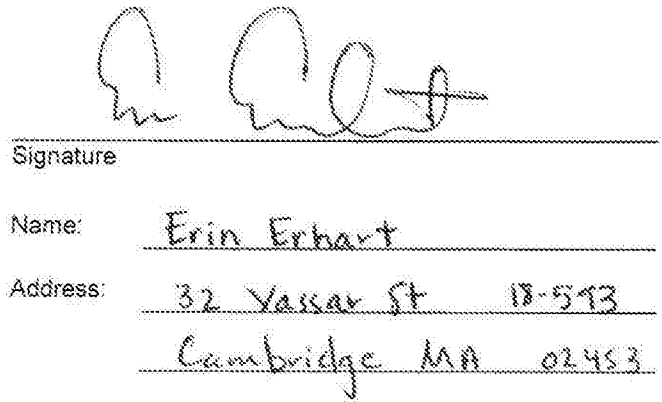 Signature
Name: Erin Erhart
Address: 32 Vassar St 18-593
Cambridge MA 02453